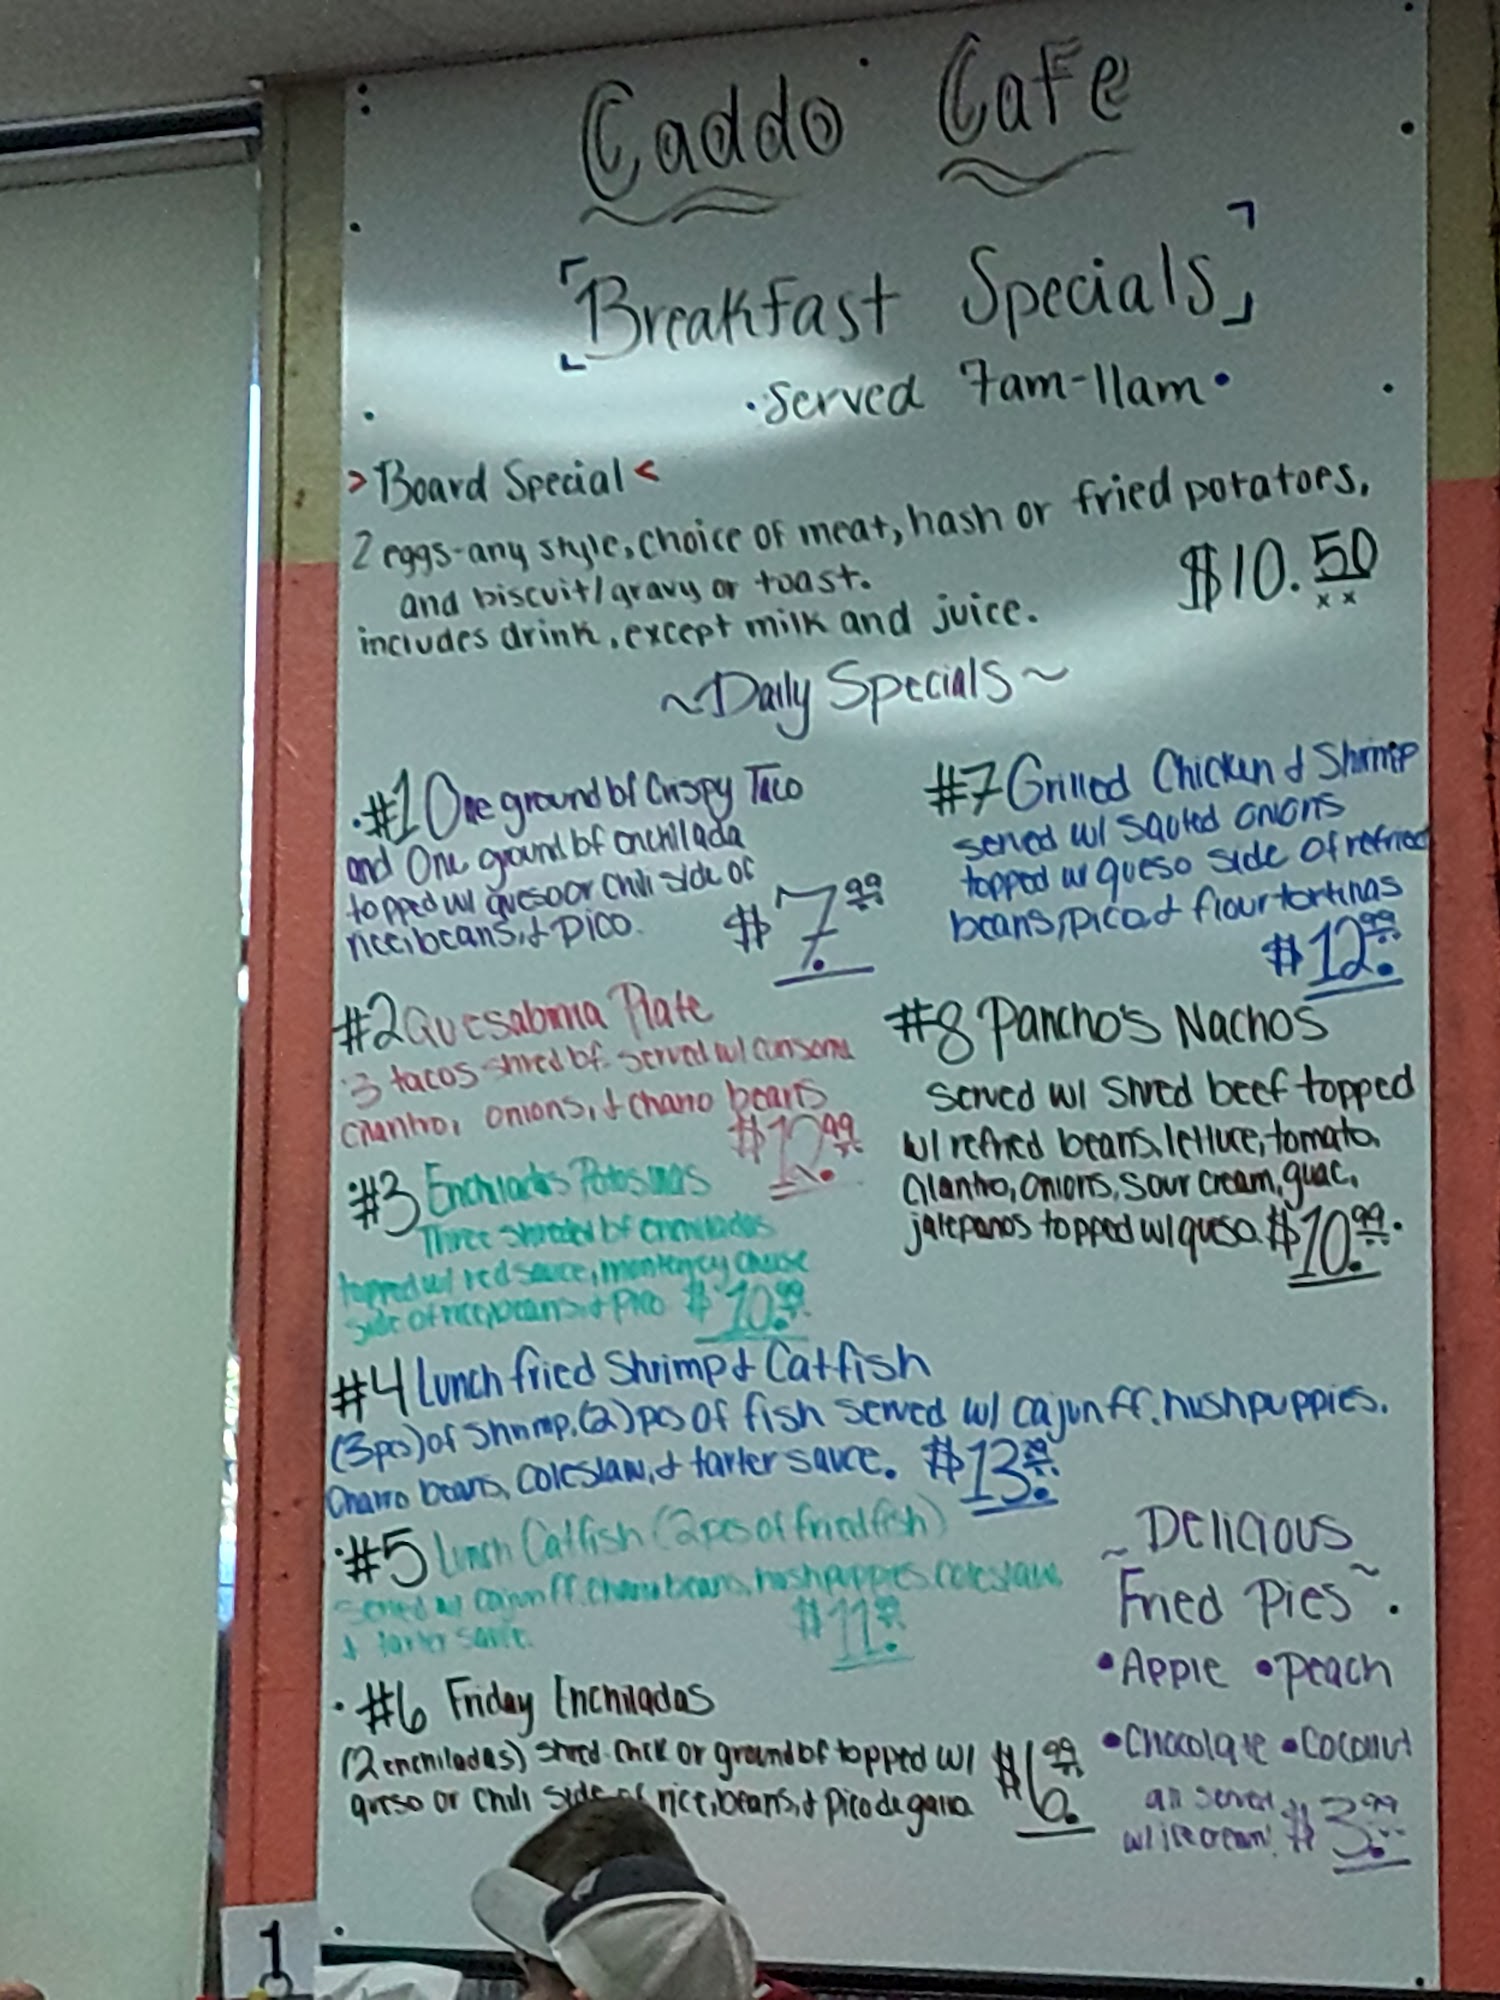 Caddo Cafe
Breakfast Specials
Served 7am-11am
>Board Special<
2 eggs-any style, choice of meat, hash or fried potatoes,
and biscuit/gravy or toast.
includes drink, except milk and juice.
$10.50
~Daily Specials~
#1 One ground bf Crispy Taco
and One ground bf enchilada
topped w/ queso or chili side of
rice, beans, & pico.
$7.99
#2 Quesabirria Plate
3 tacos shred bf. served w/ consome
cilantro, onions, & charro beans
$10.99
#3 Enchiladas Potosinas
Three shredded bf enchiladas
topped w/ red sauce, monterey cheese
side of rice, beans, & pico $10.99
#4 Lunch fried Shrimp & Catfish
(3pcs) of shrimp, (2) pcs of fish served w/ cajun ff, hushpuppies,
charro beans, coleslaw, & tarter sauce. $13.99
#5 Lunch Catfish (2pcs of fried fish)
served w/ cajun ff, charro beans, hushpuppies, coleslaw,
& tarter sauce. $11.99
#6 Friday Enchiladas
(2 enchiladas) shred chick or ground bf topped w/
queso or chili side of rice, beans, & pico de gallo
$6.99
#7 Grilled Chicken & Shrimp
served w/ sauted onions
topped w queso side of refried
beans, pico, & flour tortillas
$12.99
#8 Pancho's Nachos
served w/ shred beef topped
w/ refried beans, lettuce, tomato,
cilantro, onions, sour cream, guac,
jalepanos topped w/ queso. $10.99
~Delicious
Fried Pies~
•Apple •Peach
•Chocolate •Coconut
all served
w/ ice cream! $3.99
1